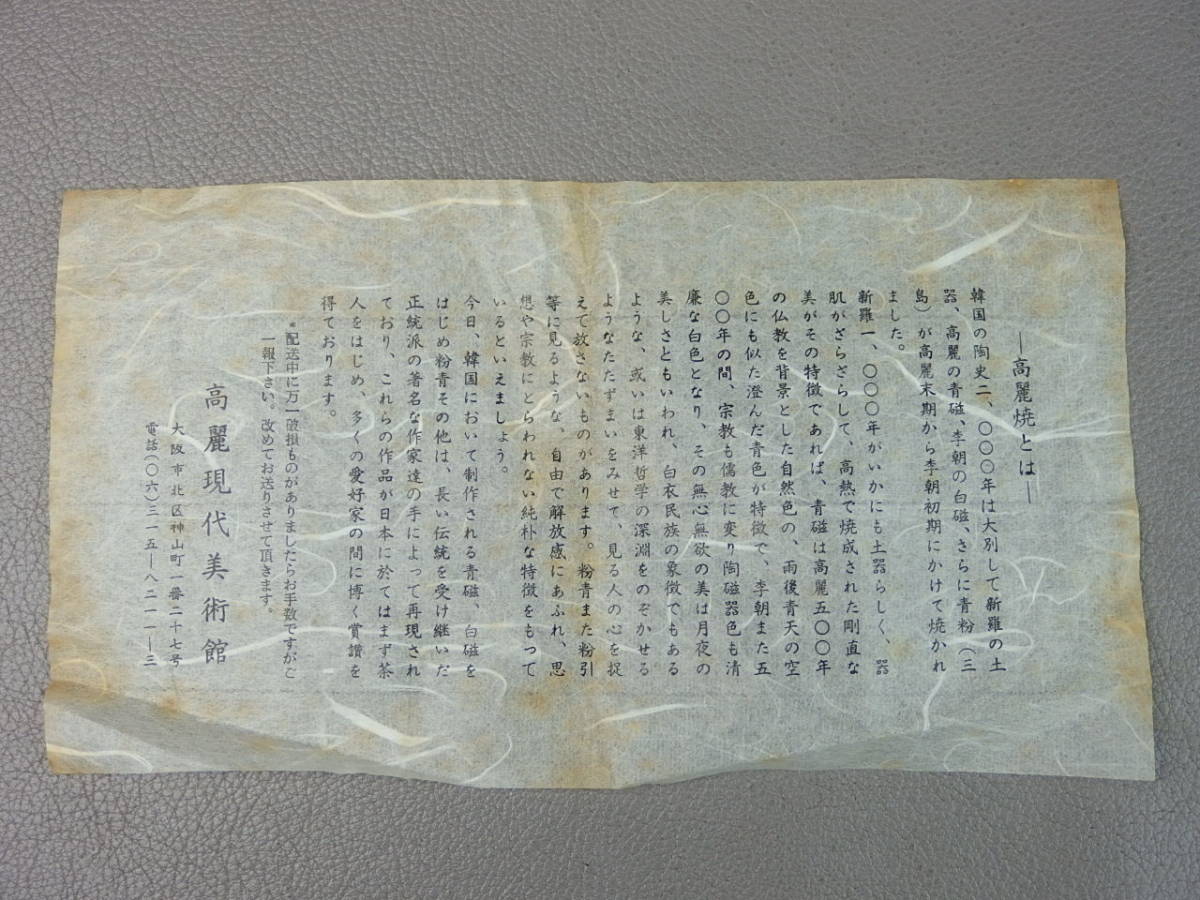 ―高麗焼とは―
韓国の陶史二、〇〇〇年は大別して新羅の土
器、高麗の青磁、李朝の白磁、さらに青粉（三
島）が高麗末期から李朝初期にかけて焼かれ
ました。
新羅一、〇〇〇年がいかにも土器らしく、器
肌がざらざらして、高熱で焼成された剛直な
美がその特徴であれば、青磁は高麗五〇〇年
の仏教を背景とした自然色の、雨後青天の空
色にも似た澄んだ青色が特徴で、李朝また五
〇〇年の間、宗教も儒教に変り陶磁器色も清
廉な白色となり、その無心無欲の美は月夜の
美しさともいわれ、白衣民族の象徴でもある
ような、或いは東洋哲学の深淵をのぞかせる
ようなたたずまいをみせて、見る人の心を捉
えて放さないものがあります。粉青また粉引
等に見るような、自由で解放感にあふれ、思
想や宗教にとらわれない純朴な特徴をもって
いるといえましょう。
今日、韓国において制作される青磁、白磁を
はじめ粉青その他は、長い伝統を受け継いだ
正統派の著名な作家達の手によって再現され
ており、これらの作品が日本に於てはまず茶
人をはじめ、多くの愛好家の間に博く賞讃を
得ております。
*配送中に万一破損ものがありましたらお手数ですがご
一報下さい。改めてお送りさせて頂きます。
高麗現代美術館
大阪市北区神山町一番二十七号
電話（〇六）三一五―八二一一―三